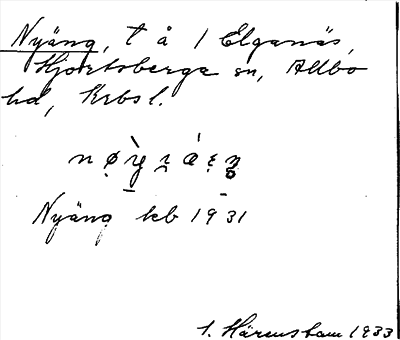 Nyäng, t å 1 Elganäs,
Hjortsberga sn, Allbo
hd, Krbs l.
Nyäng kb 1931
S. Härenstam 1933